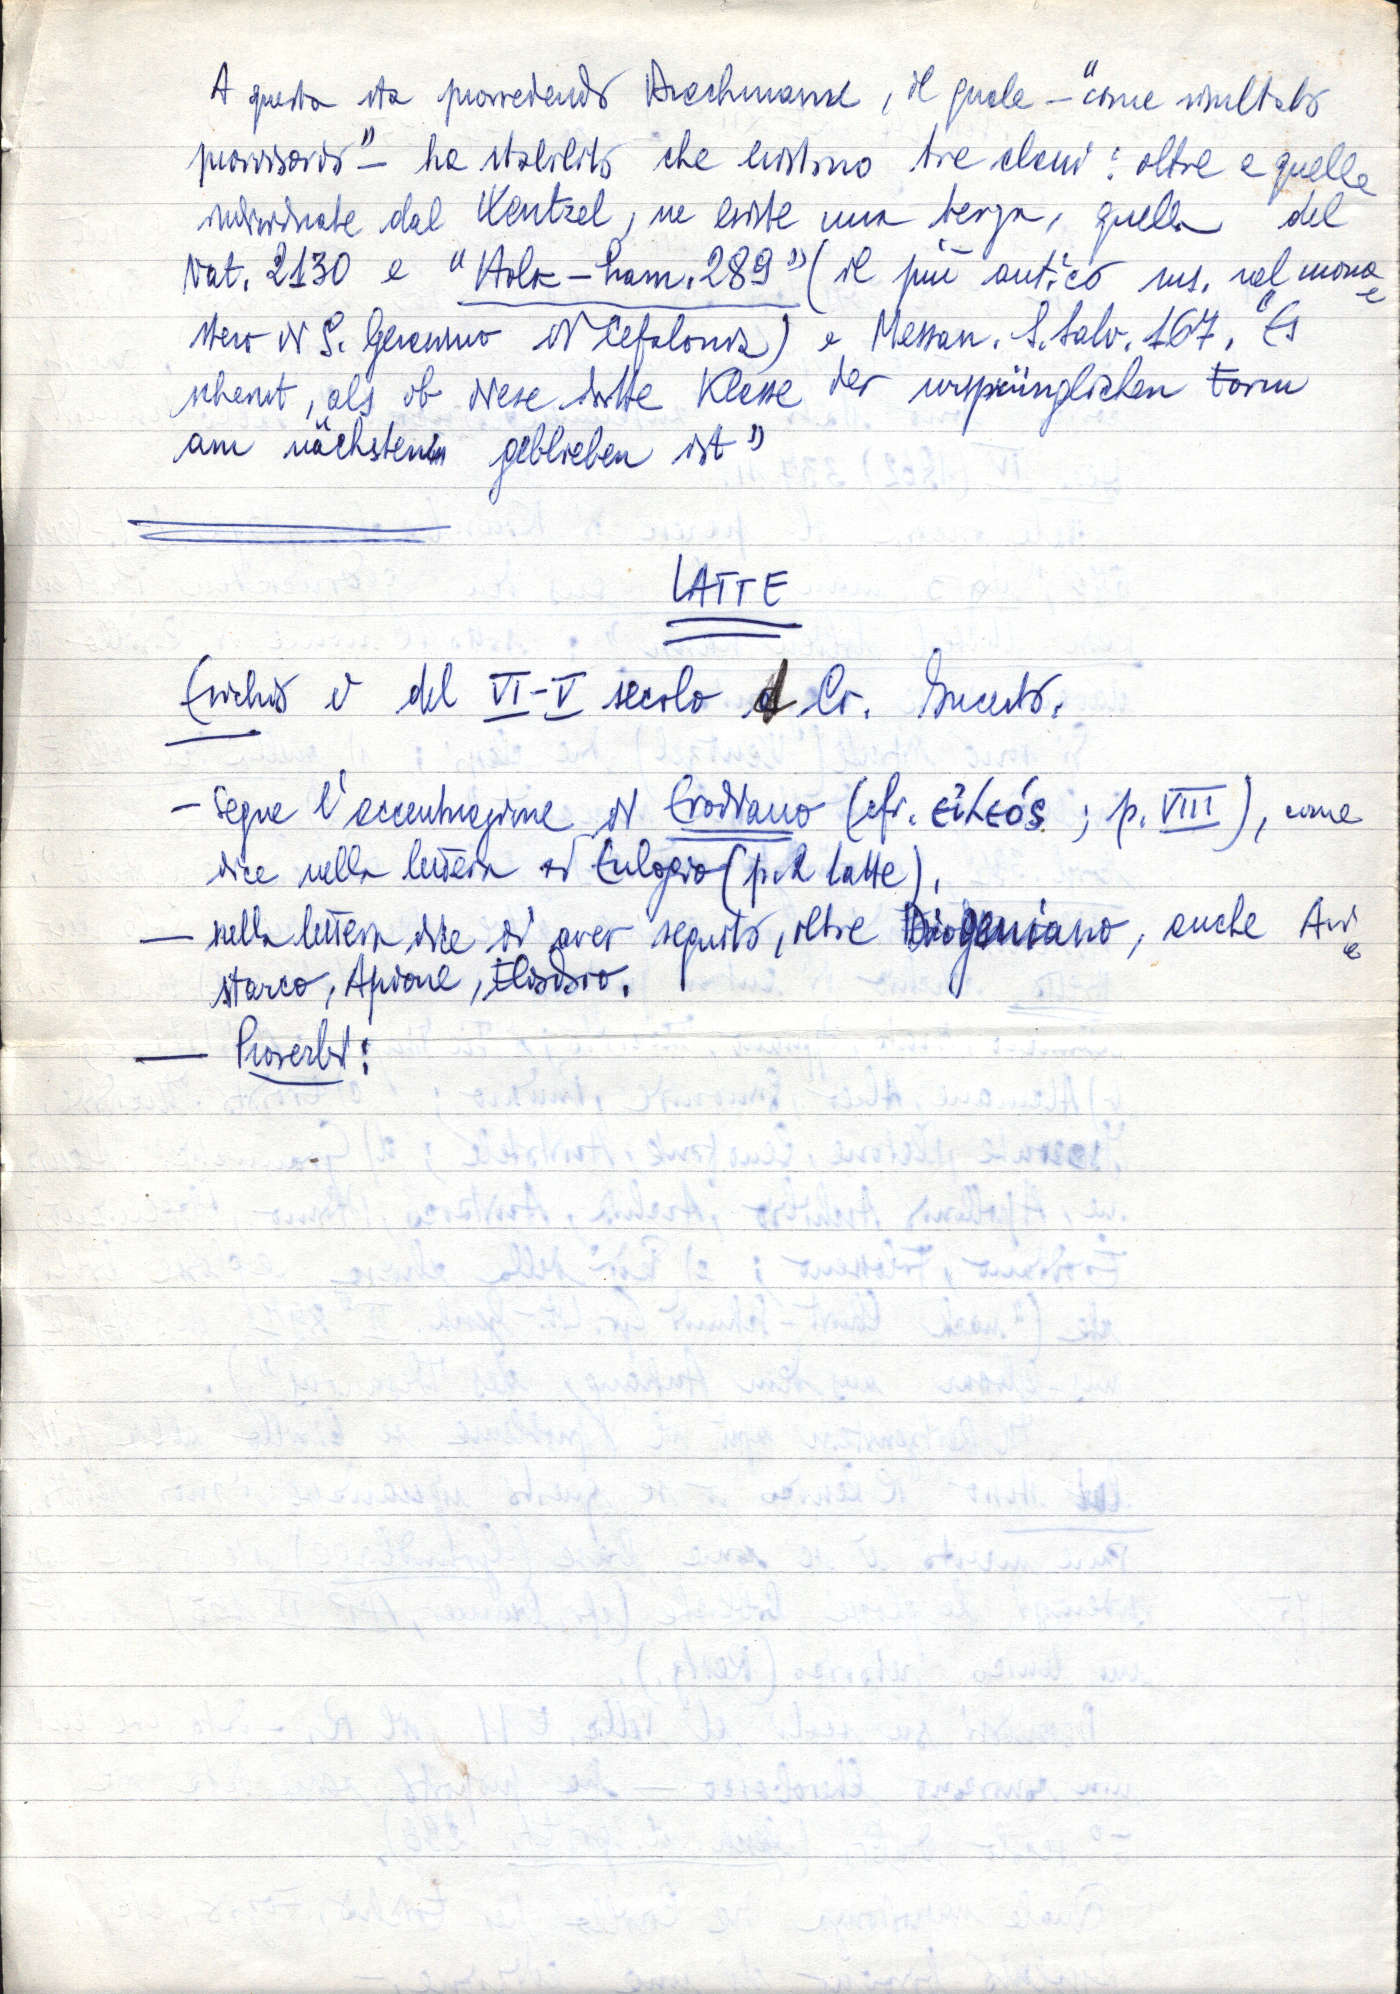 A questa sta provvedendo Drachmann, il quale – "come risultato
provvisorio" – ha stabilito che esistono tre classi: oltre a quelle
individuate dal Wentzel, ne esiste una terza, quella del
Vat. 2130 e "Holk-ham. 289" (il più antico ms. nel mona
stero di S. Gerasimo di Cefalonia) e Messan. S. Salv. 167. "Es
scheint, als ob diese dritte Klasse der ursprünglichen Form
am nächsten geblieben ist"
LATTE
Esichio è del VI-V secolo d Cr. Incerto.
– Segue l'accentuazione di Erodiano (cfr. εἰλεός ; p. VIII), come
dice nella lettera ad Eulogio (p. 2 Latte).
— nella lettera dice di aver seguito, oltre Diogeniano, anche Ari
starco, Apione, Eliodoro.
— Proverbi: